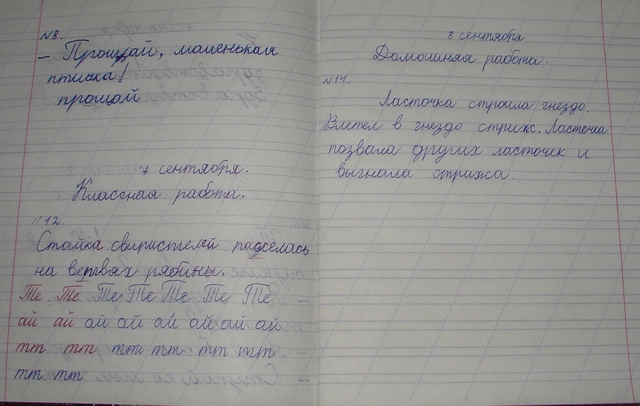 №8.
– Прощай, маленькая
птичка!
прощай
7 сентября.
Классная работа.
№12.
Стайка свиристелей расселась
на ветвях рябины.
Те Те Те Те Те Те Те
ай ай ай ай ай ай ай ай
тт тт тт тт тт тт
тт тт
8 сентября
Домашняя работа.
№14.
Ласточка строила гнездо.
Влетел в гнездо стриж. Ласточка
позвала других ласточек и
выгнала стрижа.